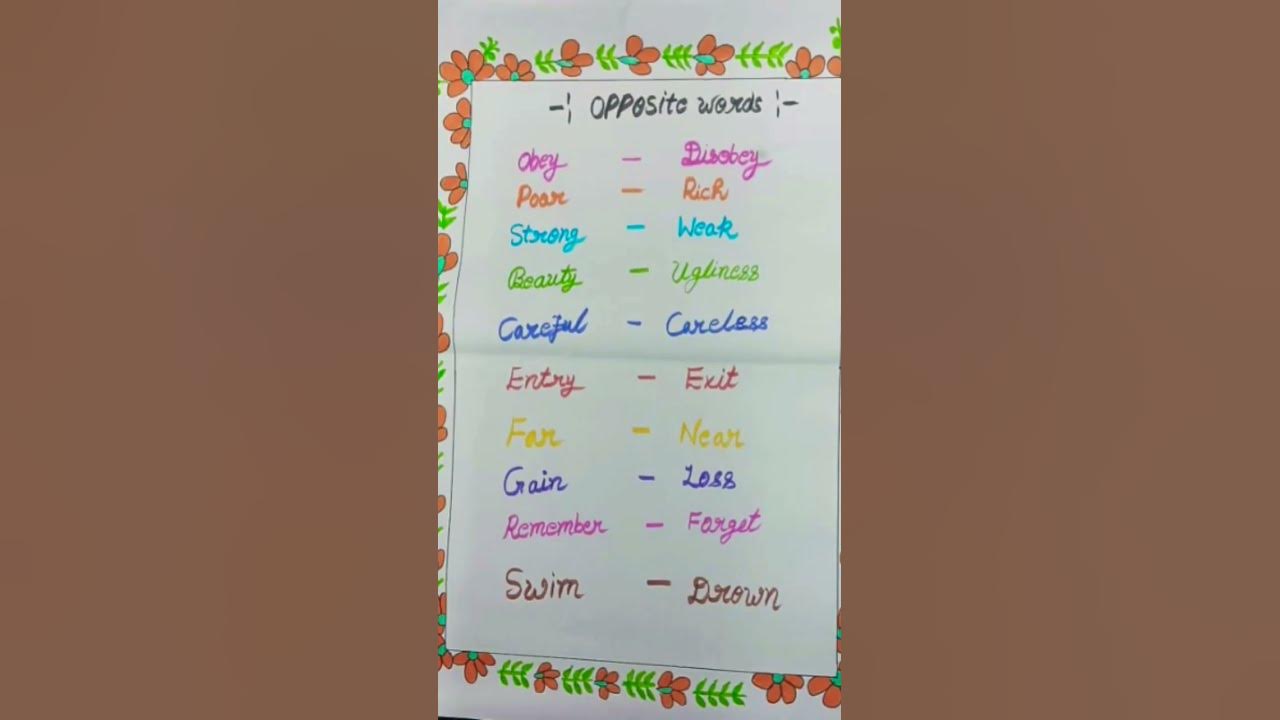 -¦ OPPOSite words ¦-
Obey - Disobey
Poor - Rich
Strong - Weak
Beauty - Ugliness
Careful - Careless
Entry - Exit
Far - Near
Gain - Loss
Remember - Forget
Swim - Drown